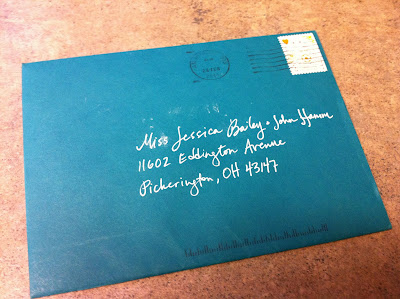 Miss Jessica Bailey + John
11602 Eddington Avenue
Pickerington, OH 43147